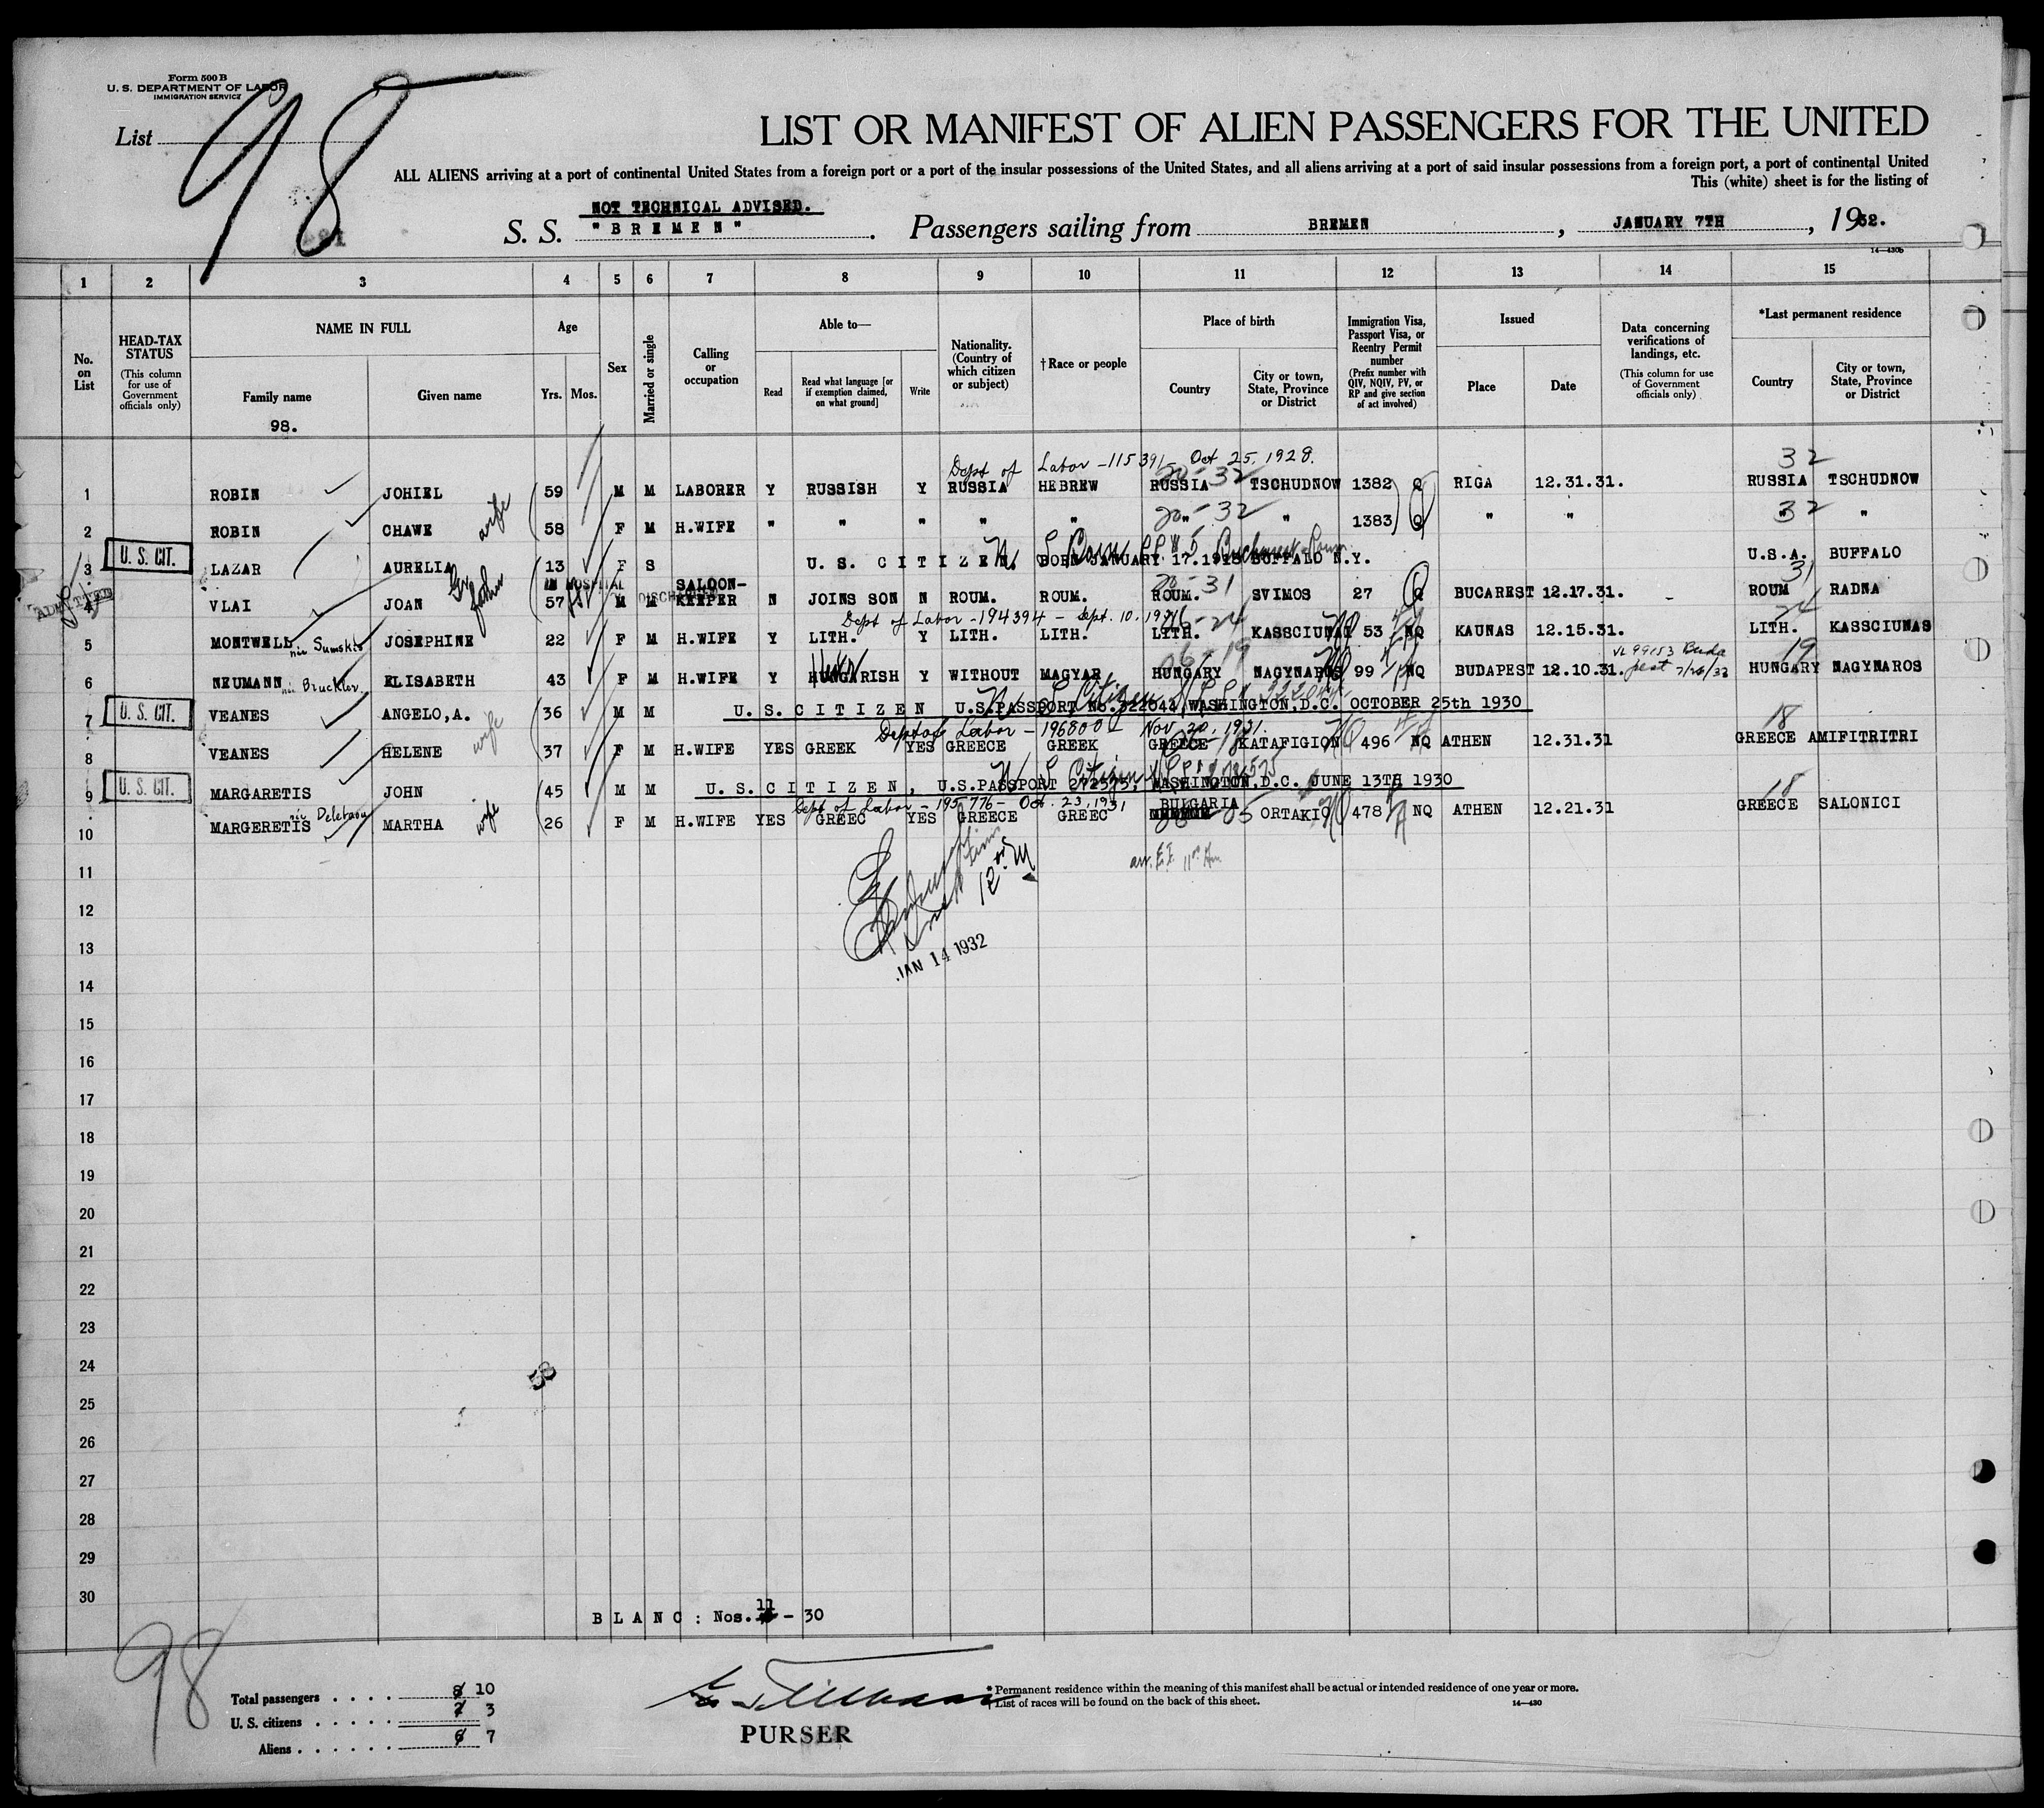 Form 500 B
U. S. DEPARTMENT OF LABOR
IMMIGRATION SERVICE
List
98
LIST OR MANIFEST OF ALIEN PASSENGERS FOR THE UNITED
ALL ALIENS arriving at a port of continental United States from a foreign port or a port of the insular possessions of the United States, and all aliens arriving at a port of said insular possessions from a foreign port, a port of continental United
This (white) sheet is for the listing of
NOT TECHNICAL ADVISED.
S. S. "BREMEN". Passengers sailing from BREMEN, JANUARY 7TH, 1932.
14—430b
1 2 3 4 5 6 7 8 9 10 11 12 13 14 15
No. on List
HEAD-TAX STATUS (This column for use of Government officials only)
NAME IN FULL
Family name
Given name
98.
Age
Yrs. Mos.
Sex
Married or single
Calling or occupation
Able to—
Read
Read what language [or if exemption claimed, on what ground]
Write
Nationality. (Country of which citizen or subject)
†Race or people
Place of birth
Country
City or town, State, Province or District
Immigration Visa, Passport Visa, or Reentry Permit number (Prefix number with QIV, NQIV, PV, or RP and give section of act involved)
Issued
Place
Date
Data concerning verifications of landings, etc. (This column for use of Government officials only)
*Last permanent residence
Country
City or town, State, Province or District
Dept of Labor - 115391 - Oct 25, 1928.
20-32
32
1 ROBIN JOHIEL 59 M M LABORER Y RUSSISH Y RUSSIA HEBREW RUSSIA TSCHUDNOW 1382 Q RIGA 12.31.31. RUSSIA TSCHUDNOW
20-32
32
2 ROBIN CHAWE wife 58 F M H.WIFE " " " " " " " 1383 Q " " " "
3 U. S. CIT. LAZAR AURELIA 13 F S U. S. CITIZEN, BORN JANUARY 17.1918 BUFFALO N.Y. U.S.A. BUFFALO
ADMITTED
IN HOSPITAL
DISCHARGED
20-31
31
4 VLAI JOAN 57 M M SALOON-KEEPER N JOINS SON N ROUM. ROUM. ROUM. SVIMOS 27 Q BUCAREST 12.17.31. - ROUM RADNA
Dept of Labor - 194394 - Sept. 10, 1931
24
5 MONTWELL née Sumskis JOSEPHINE 22 F M H.WIFE Y LITH. Y LITH. LITH. LITH. KASSCIUNAI 53 NQ KAUNAS 12.15.31. LITH. KASSCIUNAS
VL 99153 Buda
pest 7/26/33
19
6 NEUMANN née Bruckler ELISABETH 43 F M H.WIFE Y HUNGARISH Y WITHOUT MAGYAR HUNGARY NAGYNAROS 99 NQ BUDAPEST 12.10.31. HUNGARY NAGYNAROS
7 U. S. CIT. VEANES ANGELO,A. 36 M M U.S.CITIZEN U.S.PASSPORT No.322044, WASHINGTON,D.C. OCTOBER 25th 1930
Dept of Labor - 196800 - Nov. 20, 1931.
18
8 VEANES HELENE wife 37 F M H.WIFE YES GREEK YES GREECE GREEK GREECE KATAFIGION 496 NQ ATHEN 12.31.31 GREECE AMIFITRITRI
9 U. S. CIT. MARGARETIS JOHN 45 M M U.S.CITIZEN, U.S.PASSPORT 272575, WASHINGTON,D.C. JUNE 13TH 1930
Dept of Labor - 195776 - Oct. 23, 1931
18
10 MARGERETIS née MARTHA wife 26 F M H.WIFE YES GREEC YES GREECE GREEC BULGARIA ORTAKIO 478 NQ ATHEN 12.21.31 GREECE SALONICI
11
12
12 M
13
JAN 14 1932
14
15
16
17
18
19
20
21
22
23
24
25
26
27
28
29
30
BLANC: Nos. 11 - 30
98
Total passengers 8 10
U. S. citizens 2 3
Aliens 6 7
PURSER
* Permanent residence within the meaning of this manifest shall be actual or intended residence of one year or more.
† List of races will be found on the back of this sheet.
14—430